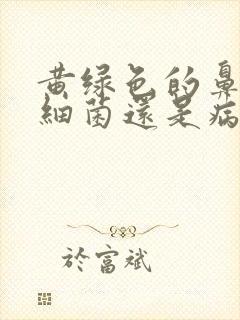 黄绿色的鼻
細菌還是病
於富斌